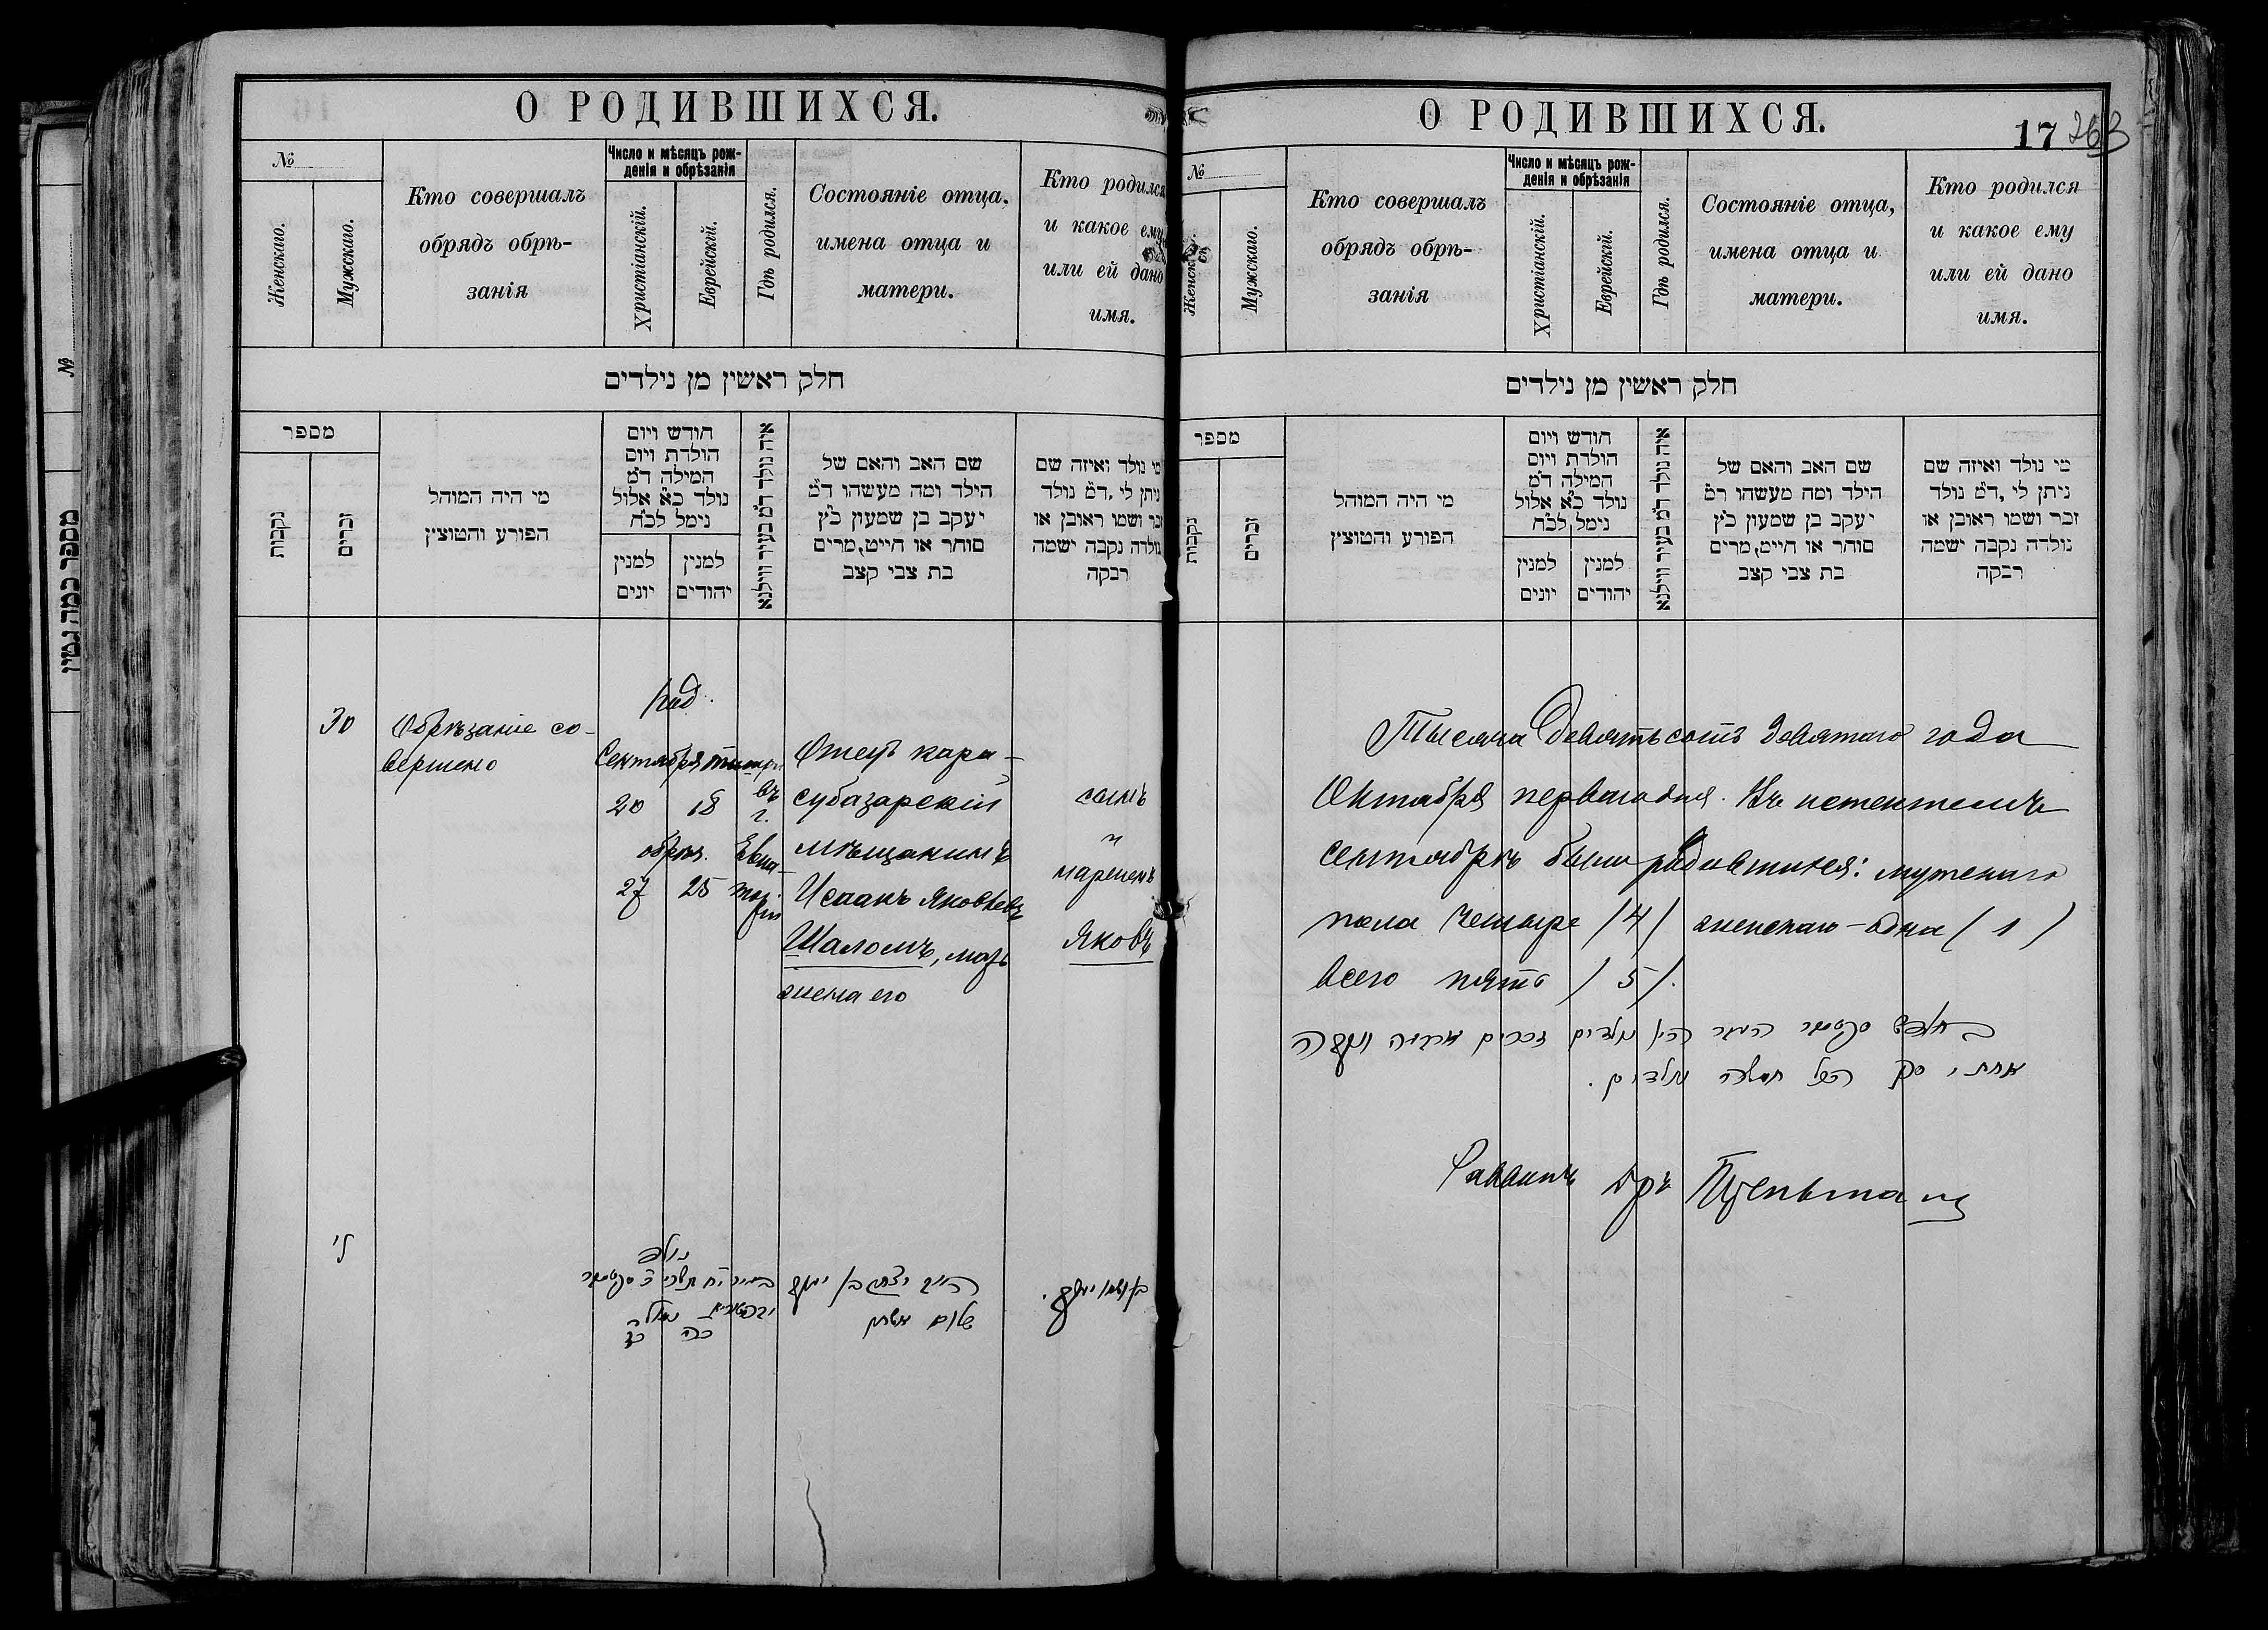 О РОДИВШИХСЯ.
№
Женскаго.
Мужскаго.
Кто совершалъ
обрядъ обрѣ-
занія
Число и мѣсяцъ рож-
денія и обрѣзанія
Христіанскій.
Еврейскій.
Гдѣ родился.
Состояніе отца,
имена отца и
матери.
Кто родился
и какое ему
или ей дано
имя.
חלק ראשין מן נילדים
מספר
נקבות
זכרים
מי היה המוהל
הפורע והמוצץ
חודש ויום
הולדת ויום
המילה ד״מ
נולד כ״א אלול
נימל לכ״ח
למנין
יונים
למנין
יהודים
איה נולד ד״מ בעיר ווילנא
שם האב והאם של
הילד ומה מעשהו ד״מ
יעקב בן שמעון כ״ץ
סוחר או חייט, מרים
בת צבי קצב
מי נולד ואיזה שם
ניתן לי, ד״מ נולד
זכר ושמו ראובן או
נולדה נקבה ישמה
רבקה
30
Обрѣзаніе со-
вершено
род.
Сентября тишри
20 18
обрѣз.
27 25
въ
г.
Евпа-
торіи
Отецъ кара-
субазарскій
мѣщанинъ
Исаакъ Яковлевъ
Шаломъ, мать
жена его
сынъ
и
нареченъ
Яковъ
ל׳
נולד
יצחק בן יעקב
שלום
כה כז
О РОДИВШИХСЯ.
17 263
№
Женскаго.
Мужскаго.
Кто совершалъ
обрядъ обрѣ-
занія
Число и мѣсяцъ рож-
денія и обрѣзанія
Христіанскій.
Еврейскій.
Гдѣ родился.
Состояніе отца,
имена отца и
матери.
Кто родился
и какое ему
или ей дано
имя.
חלק ראשין מן נילדים
מספר
נקבות
זכרים
מי היה המוהל
הפורע והמוצץ
חודש ויום
הולדת ויום
המילה ד״מ
נולד כ״א אלול
נימל לכ״ח
למנין
יונים
למנין
יהודים
איה נולד ד״מ בעיר ווילנא
שם האב והאם של
הילד ומה מעשהו ד״מ
יעקב בן שמעון כ״ץ
סוחר או חייט, מרים
בת צבי קצב
מי נולד ואיזה שם
ניתן לי, ד״מ נולד
זכר ושמו ראובן או
נולדה נקבה ישמה
רבקה
Тысяча Девятьсотъ девятаго года
Октября перваго дня. Въ истекшемъ
сентябрѣ были родившихся: мужскаго
пола четыре /4/ женскаго - одна (1)
всего пять /5/.
בחודש סעפטמבר היו נולדים זכרים ארבעה ונקבה
אחת, סך הכל חמשה נולדים.
Раввинъ Д-ръ